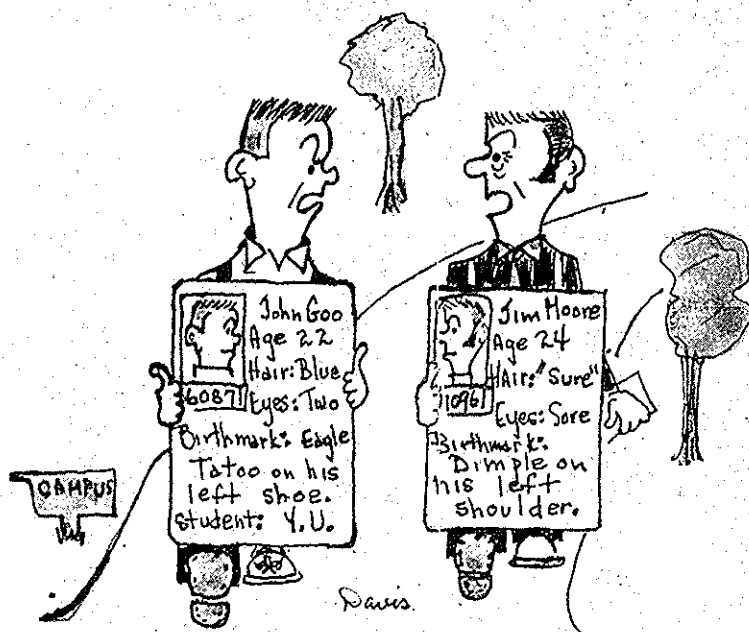 John Goo
Age 22
Hair: Blue
60871
Eyes: Two
Birthmark: Eagle
Tatoo on his
left shoe.
Student: Y.U.
Jim Moore
Age 24
HAir: "Sure"
10961
Eyes: Sore
Birthmark:
Dimple on
his left
shoulder.
CAMPUS
Davis